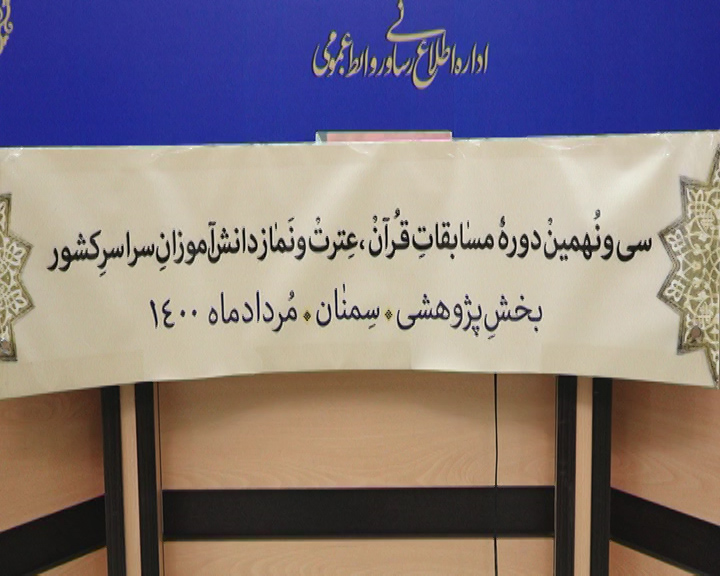 اداره اطلاع رسانی و روابط عمومی
سی و نُهمینْ دورهٔ مسابقاتِ قُرآنْ، عِترتْ و نَماز دانش‌آموزانِ سراسرِ کشور
بخشِ پژوهشی * سِمنان * مُردادماه ۱٤۰۰